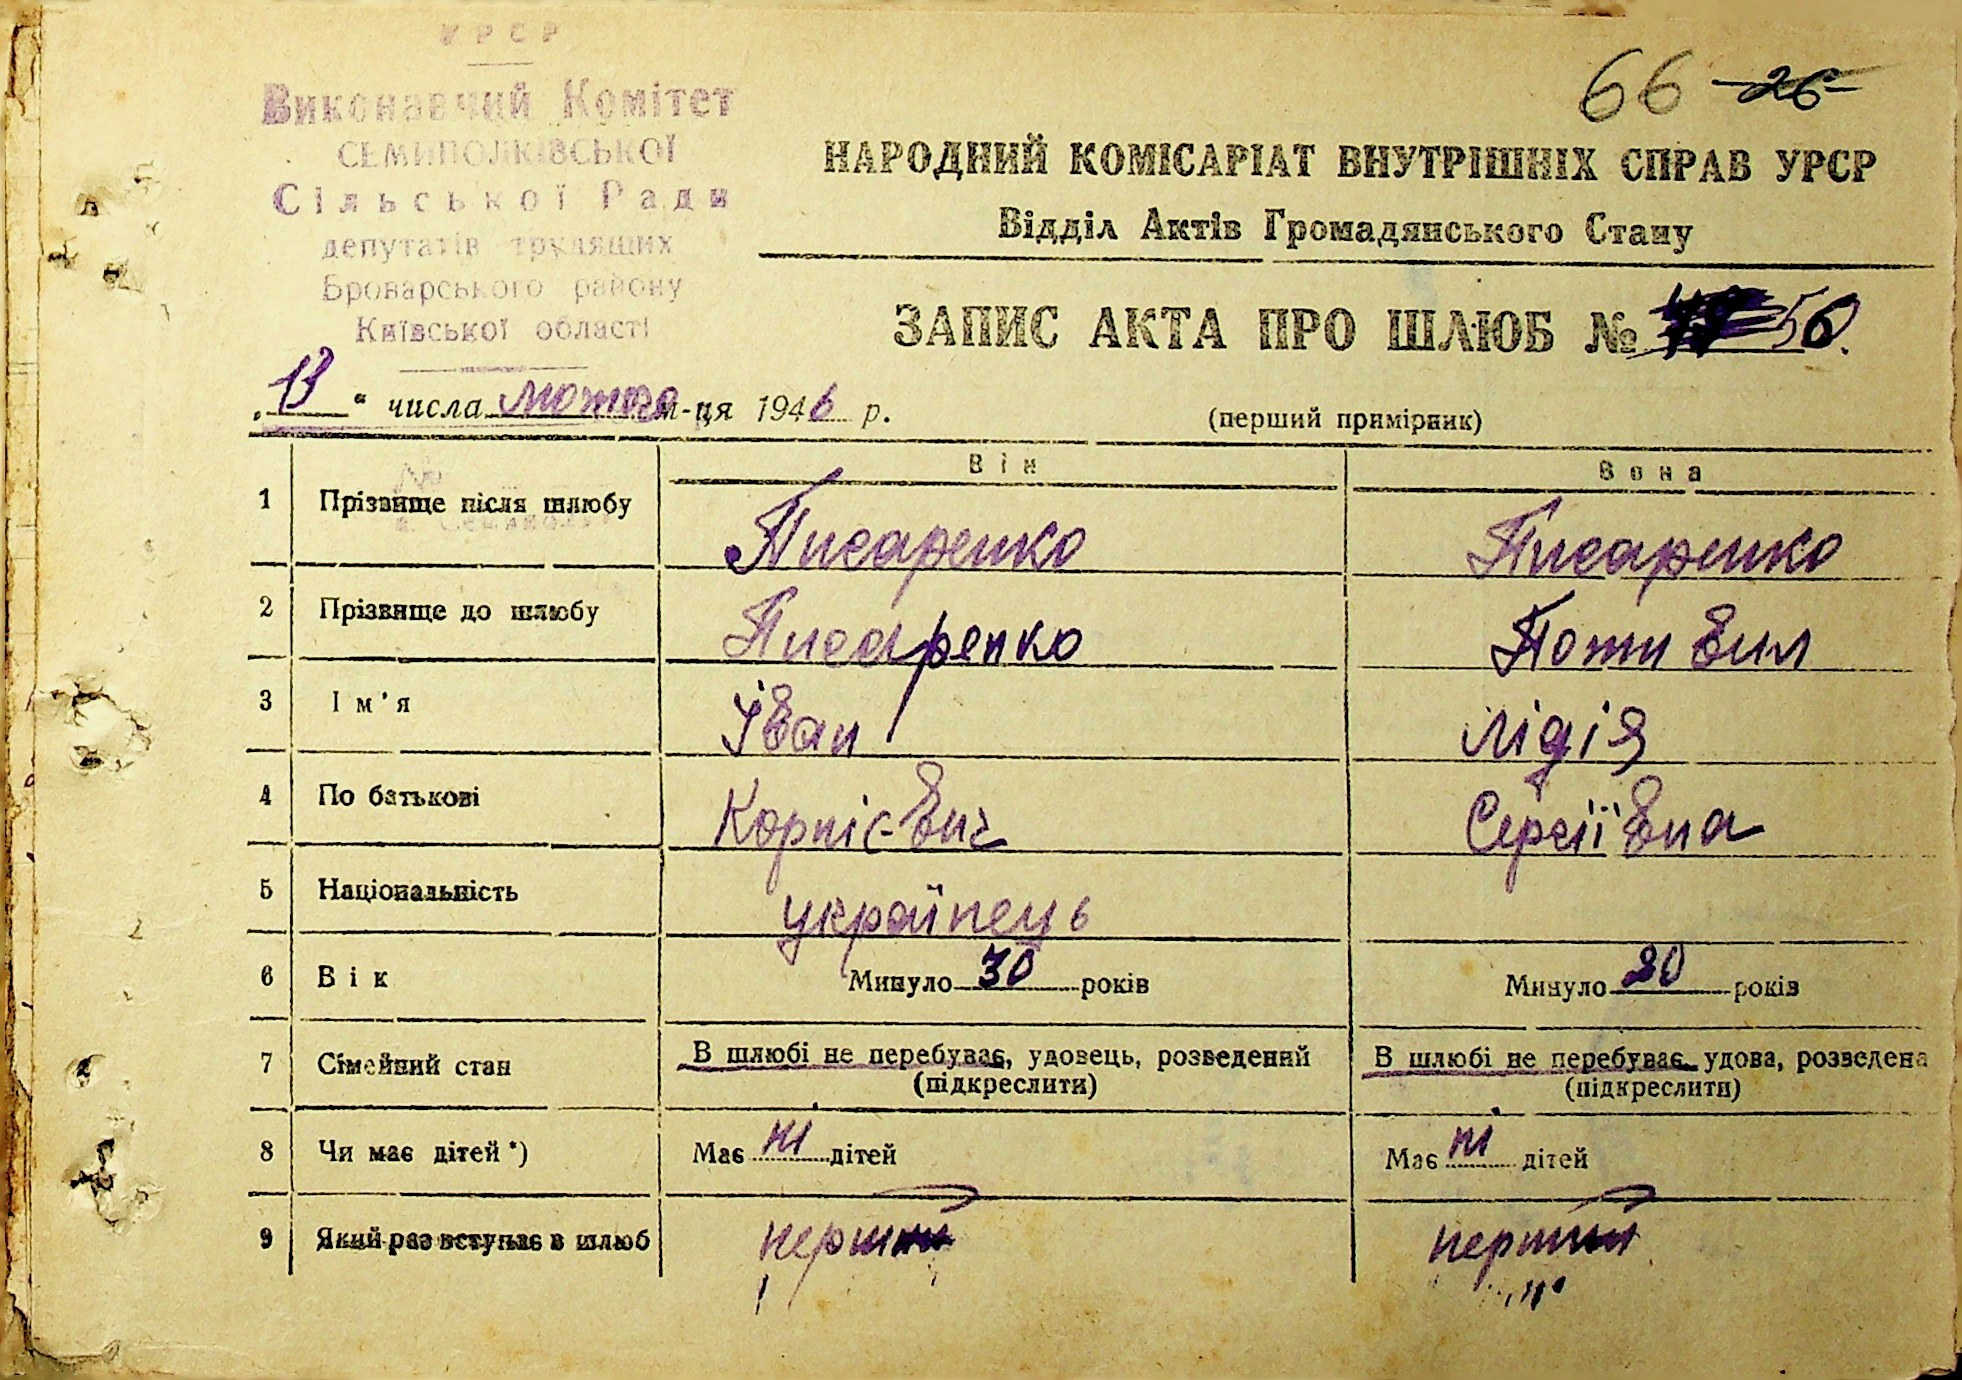 УРСР
Виконавчий Комітет
СЕМИПОЛКІВСЬКОЇ
Сільської Ради
депутатів трудящих
Броварського району
Київської області
66 26
НАРОДНИЙ КОМІСАРІАТ ВНУТРІШНІХ СПРАВ УРСР
Відділ Актів Громадянського Стану
ЗАПИС АКТА ПРО ШЛЮБ № 50.
„13" числа лютого м-ця 1946 р.
(перший примірник)
Він Вона
1 Прізвище після шлюбу Писаренко Писаренко
2 Прізвище до шлюбу Писаренко Потивил
3 Ім'я Іван Лідія
4 По батькові Корнієвич Сергіївна
5 Національність українець
6 Вік Минуло 30 років Минуло 20 років
7 Сімейний стан В шлюбі не перебуває, удовець, розведений В шлюбі не перебуває, удова, розведена
(підкреслити) (підкреслити)
8 Чи має дітей *) Має ні дітей Має ні дітей
9 Який раз вступає в шлюб перший перший